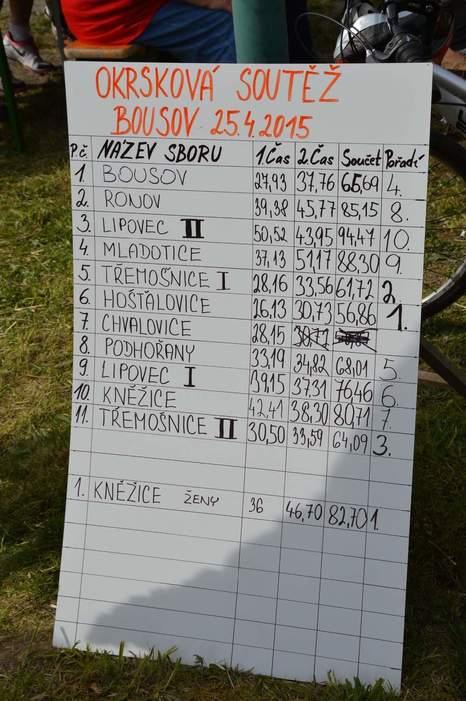 OKRSKOVÁ SOUTĚŽ
BOUSOV 25.4.2015
P.č. NÁZEV SBORU 1.Čas 2.Čas Součet Pořadí
1. BOUSOV 27,93 37,76 65,69 4.
2. RONOV 39,38 45,77 85,15 8.
3. LIPOVEC II 50,52 43,95 94,47 10.
4. MLADOTICE 37,13 51,17 88,30 9.
5 TŘEMOŠNICE I 28,16 33,56 61,72 2.
6. HOŠŤALOVICE 26,13 30,73 56,86 1.
7 CHVALOVICE 28,15
8. PODHOŘANY 33,19 34,82 68,01 5.
9. LIPOVEC I 39,15 37,31 76,46 6.
10. KNĚŽICE 42,41 38,30 80,71 7.
11. TŘEMOŠNICE II 30,50 33,59 64,09 3.
1. KNĚŽICE ŽENY 36 46,70 82,70 1.